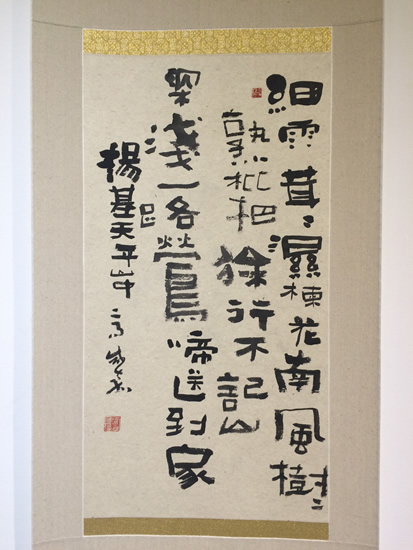 細雨茸〻濕楝花南風樹〻
熟枇杷徐行不記山
深淺一路鶯啼送到家
楊基天平山中